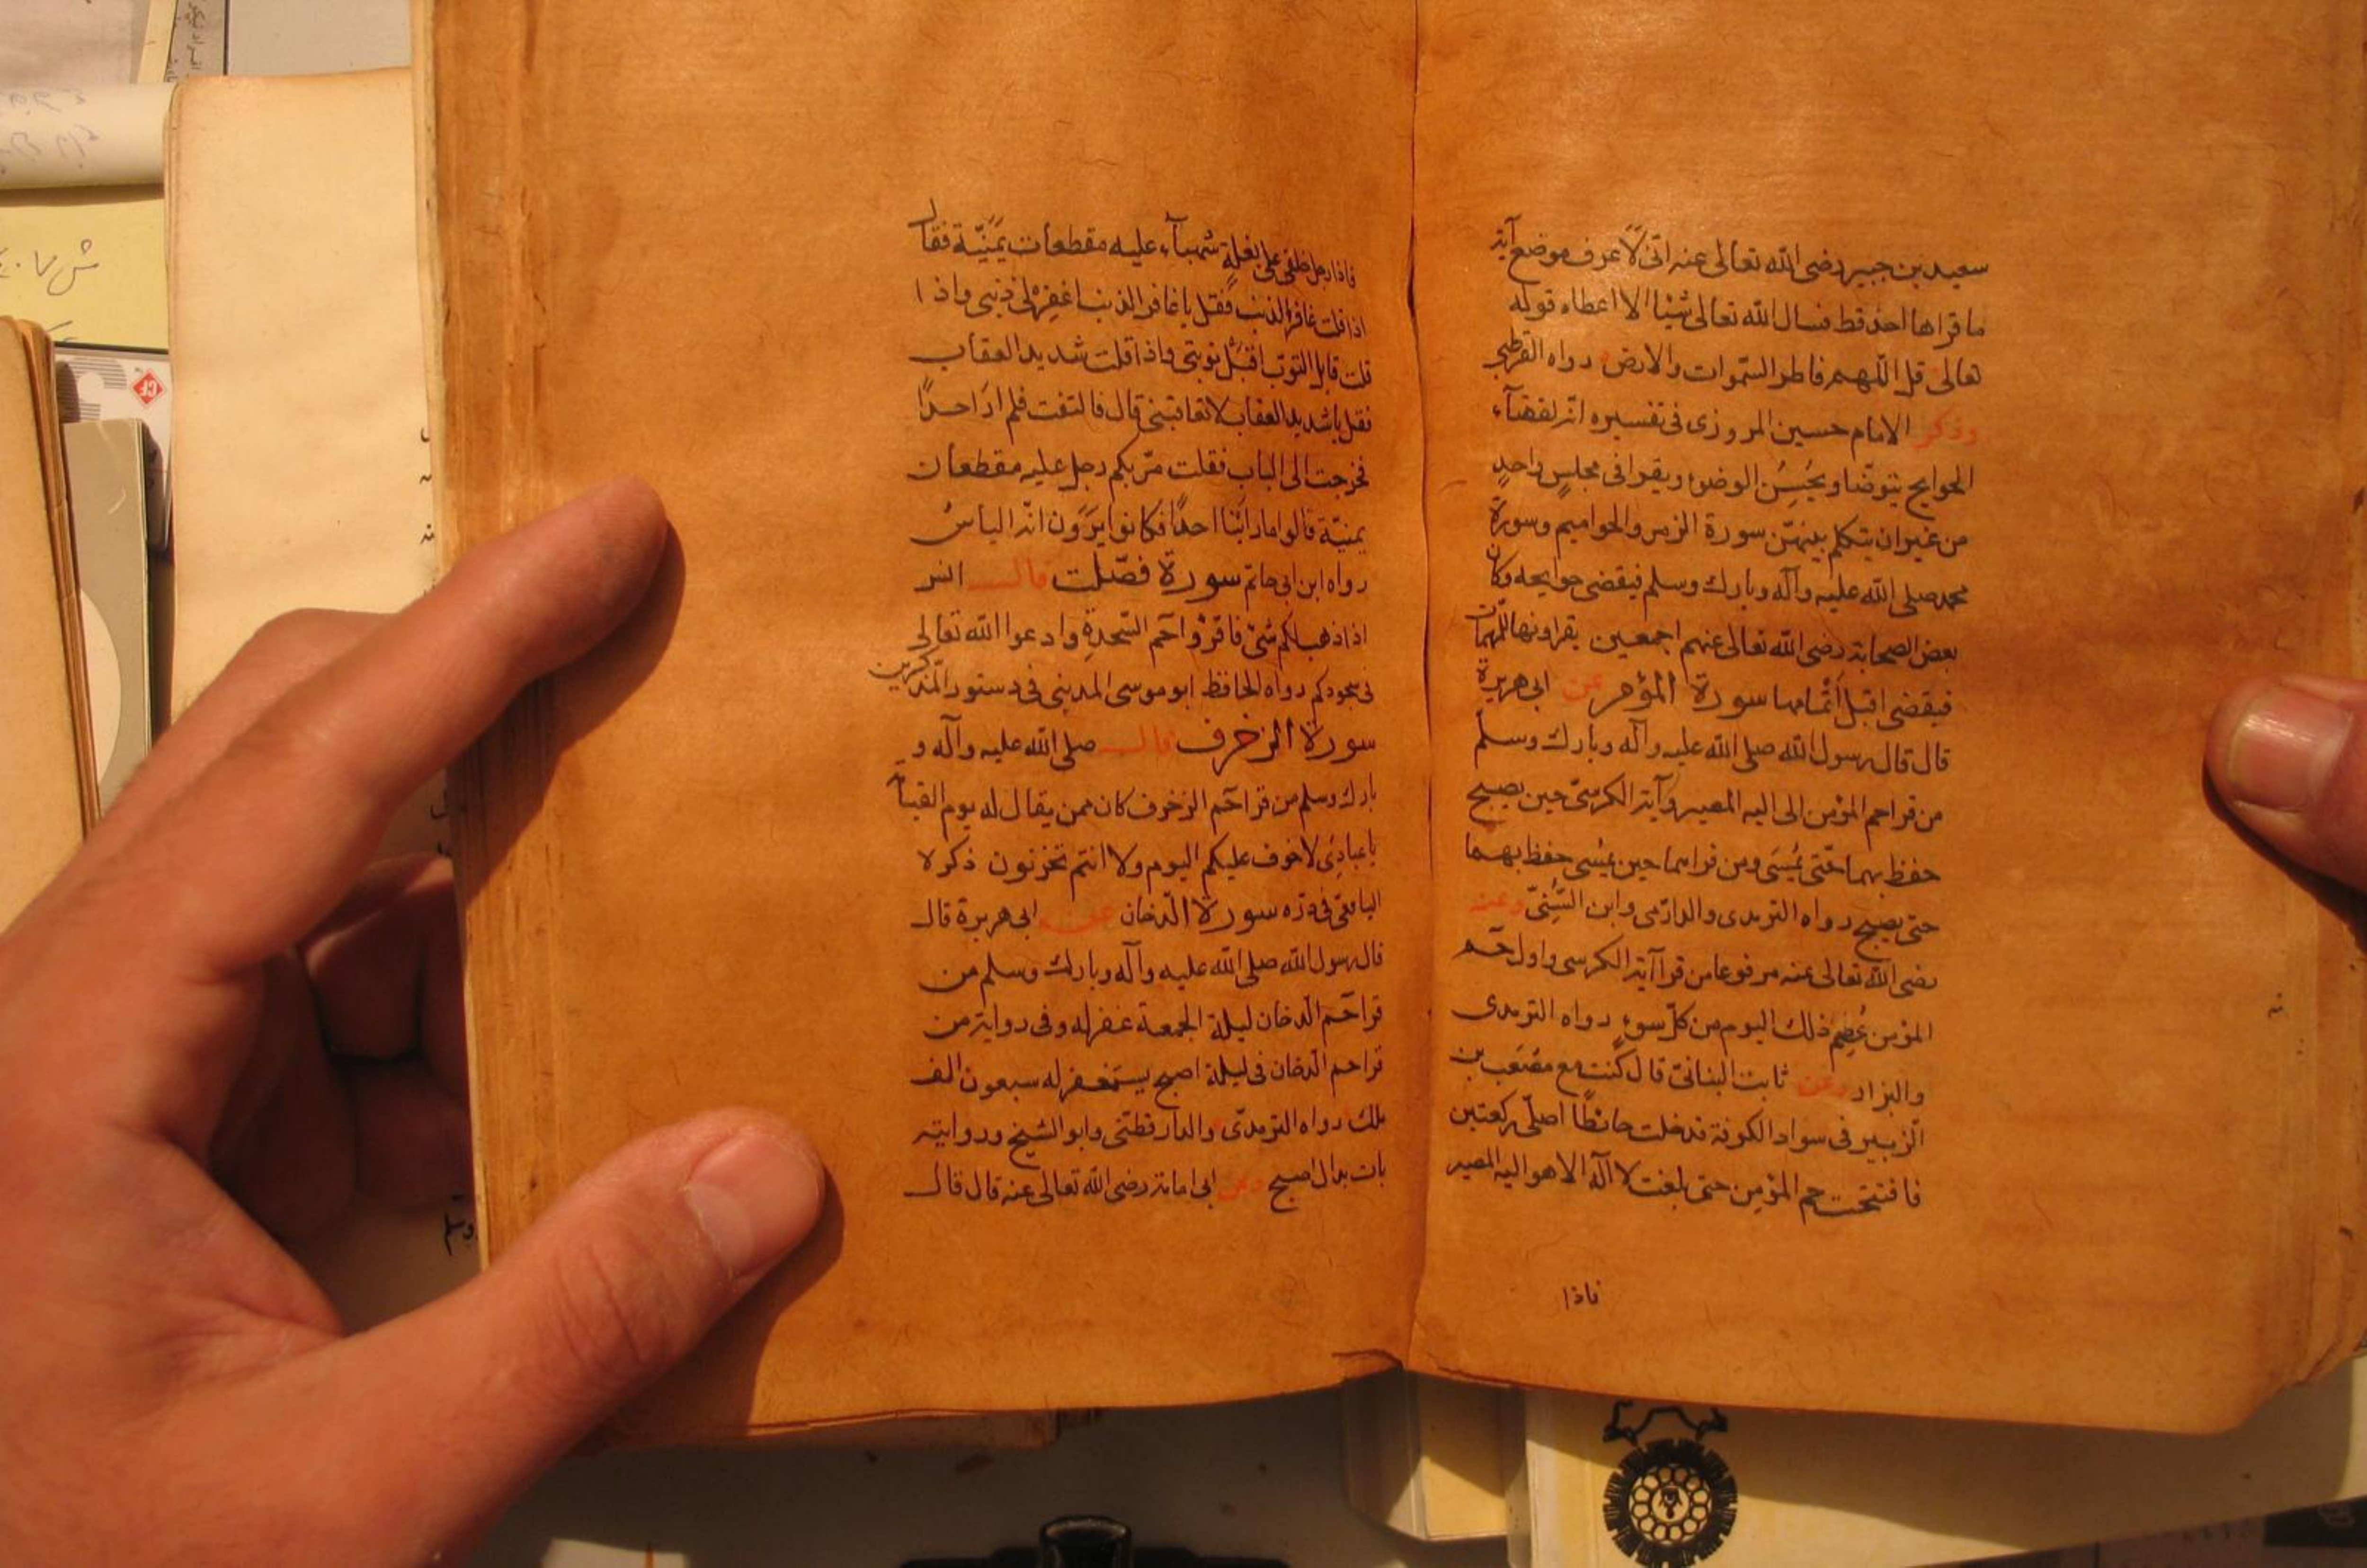 سعيد بن جبير رضى الله تعالى عنه انّى لأعرف موضع آية
ما قراها احد قط فسال الله تعالى شيئا الا اعطاه قوله
تعالى قل اللّهم فاطر السّموات والارض رواه القرطبى
وذكر الامام حسين المروزى فى تفسيره انّه لقضآء
الحوايج يتوضّا ويحسن الوضوء ويقرا فى مجلسٍ واحدٍ
من غير ان يتكلم بينهنّ سورة الزمر والحواميم وسورة
محمد صلى الله عليه وآله وبارك وسلم فيقضى حوايجه وكان
بعض الصحابة رضى الله تعالى عنهم اجمعين يقراونها للمهمّات
فيقضى قبل اتمامها سورة المؤمن عن ابى هريرة
قال قال رسول الله صلى الله عليه وآله وبارك وسلم
من قرا حم المؤمن الى اليه المصير وآية الكرسىّ حين يصبح
حفظ بهما حتّى يُمسَى ومن قراهما حين يمسى حفظ بهما
حتى يصبح رواه الترمدى والدارمى وابن السّنىّ وعنه
رضى الله تعالى عنه مرفوعا من قرا آية الكرسى واول حم
المؤمن عُصِمَ ذلك اليوم من كلّ سوءٍ رواه الترمدى
والبزار وعن ثابت البنانىّ قال كنت مع مصعب بن
الزبير فى سواد الكوفة فدخلت حائطًا اصلّى ركعتين
فافتتحت حم المؤمن حتى بلغت لا اله الا هو اليه المصير
فاذا
فاذا رجل خلفى على بغلةٍ شهبآء عليه مقطعات يمنيّة فقال
اذا قلت غافر الذنب فقل يا غافر الذنب اغفر لى ذنبى واذا
قلت قابل التوب اقبل توبتى واذا قلت شديد العقاب
فقل يا شديد العقاب لا تعاقبنى قال فالتفت فلم ار احدًا
فخرجت الى الباب فقلت مرّ بكم رجل عليه مقطعات
يمنيّة قالوا ما راينا احدًا فكانوا يرون انّه الياسُ
رواه ابن ابى حاتم سورة فصّلت قال انس
اذا ذهب لكم شئ فاقرؤا حم السّجدة وادعوا الله تعالى
فى سجودكم رواه الحافظ ابو موسى المدينى فى دستور المذّكرين
سورة الزخرف قال صلى الله عليه وآله و
بارك وسلم من قرا حم الزخرف كان ممن يقال له يوم القيامة
يا عبادى لا خوف عليكم اليوم ولا انتم تحزنون ذكره
اليافعى فى درّه سورة الدّخان عن ابى هريرة قال
قال رسول الله صلى الله عليه وآله وبارك وسلم من
قرا حم الدخان ليلة الجمعة غفر له وفى رواية من
قرا حم الدخان فى ليلة اصبح يستغفر له سبعون الف
ملك رواه الترمدىّ والدارقطنى وابو الشيخ وروايته
بات بدل اصبح وعن ابى امامة رضى الله تعالى عنه قال قال